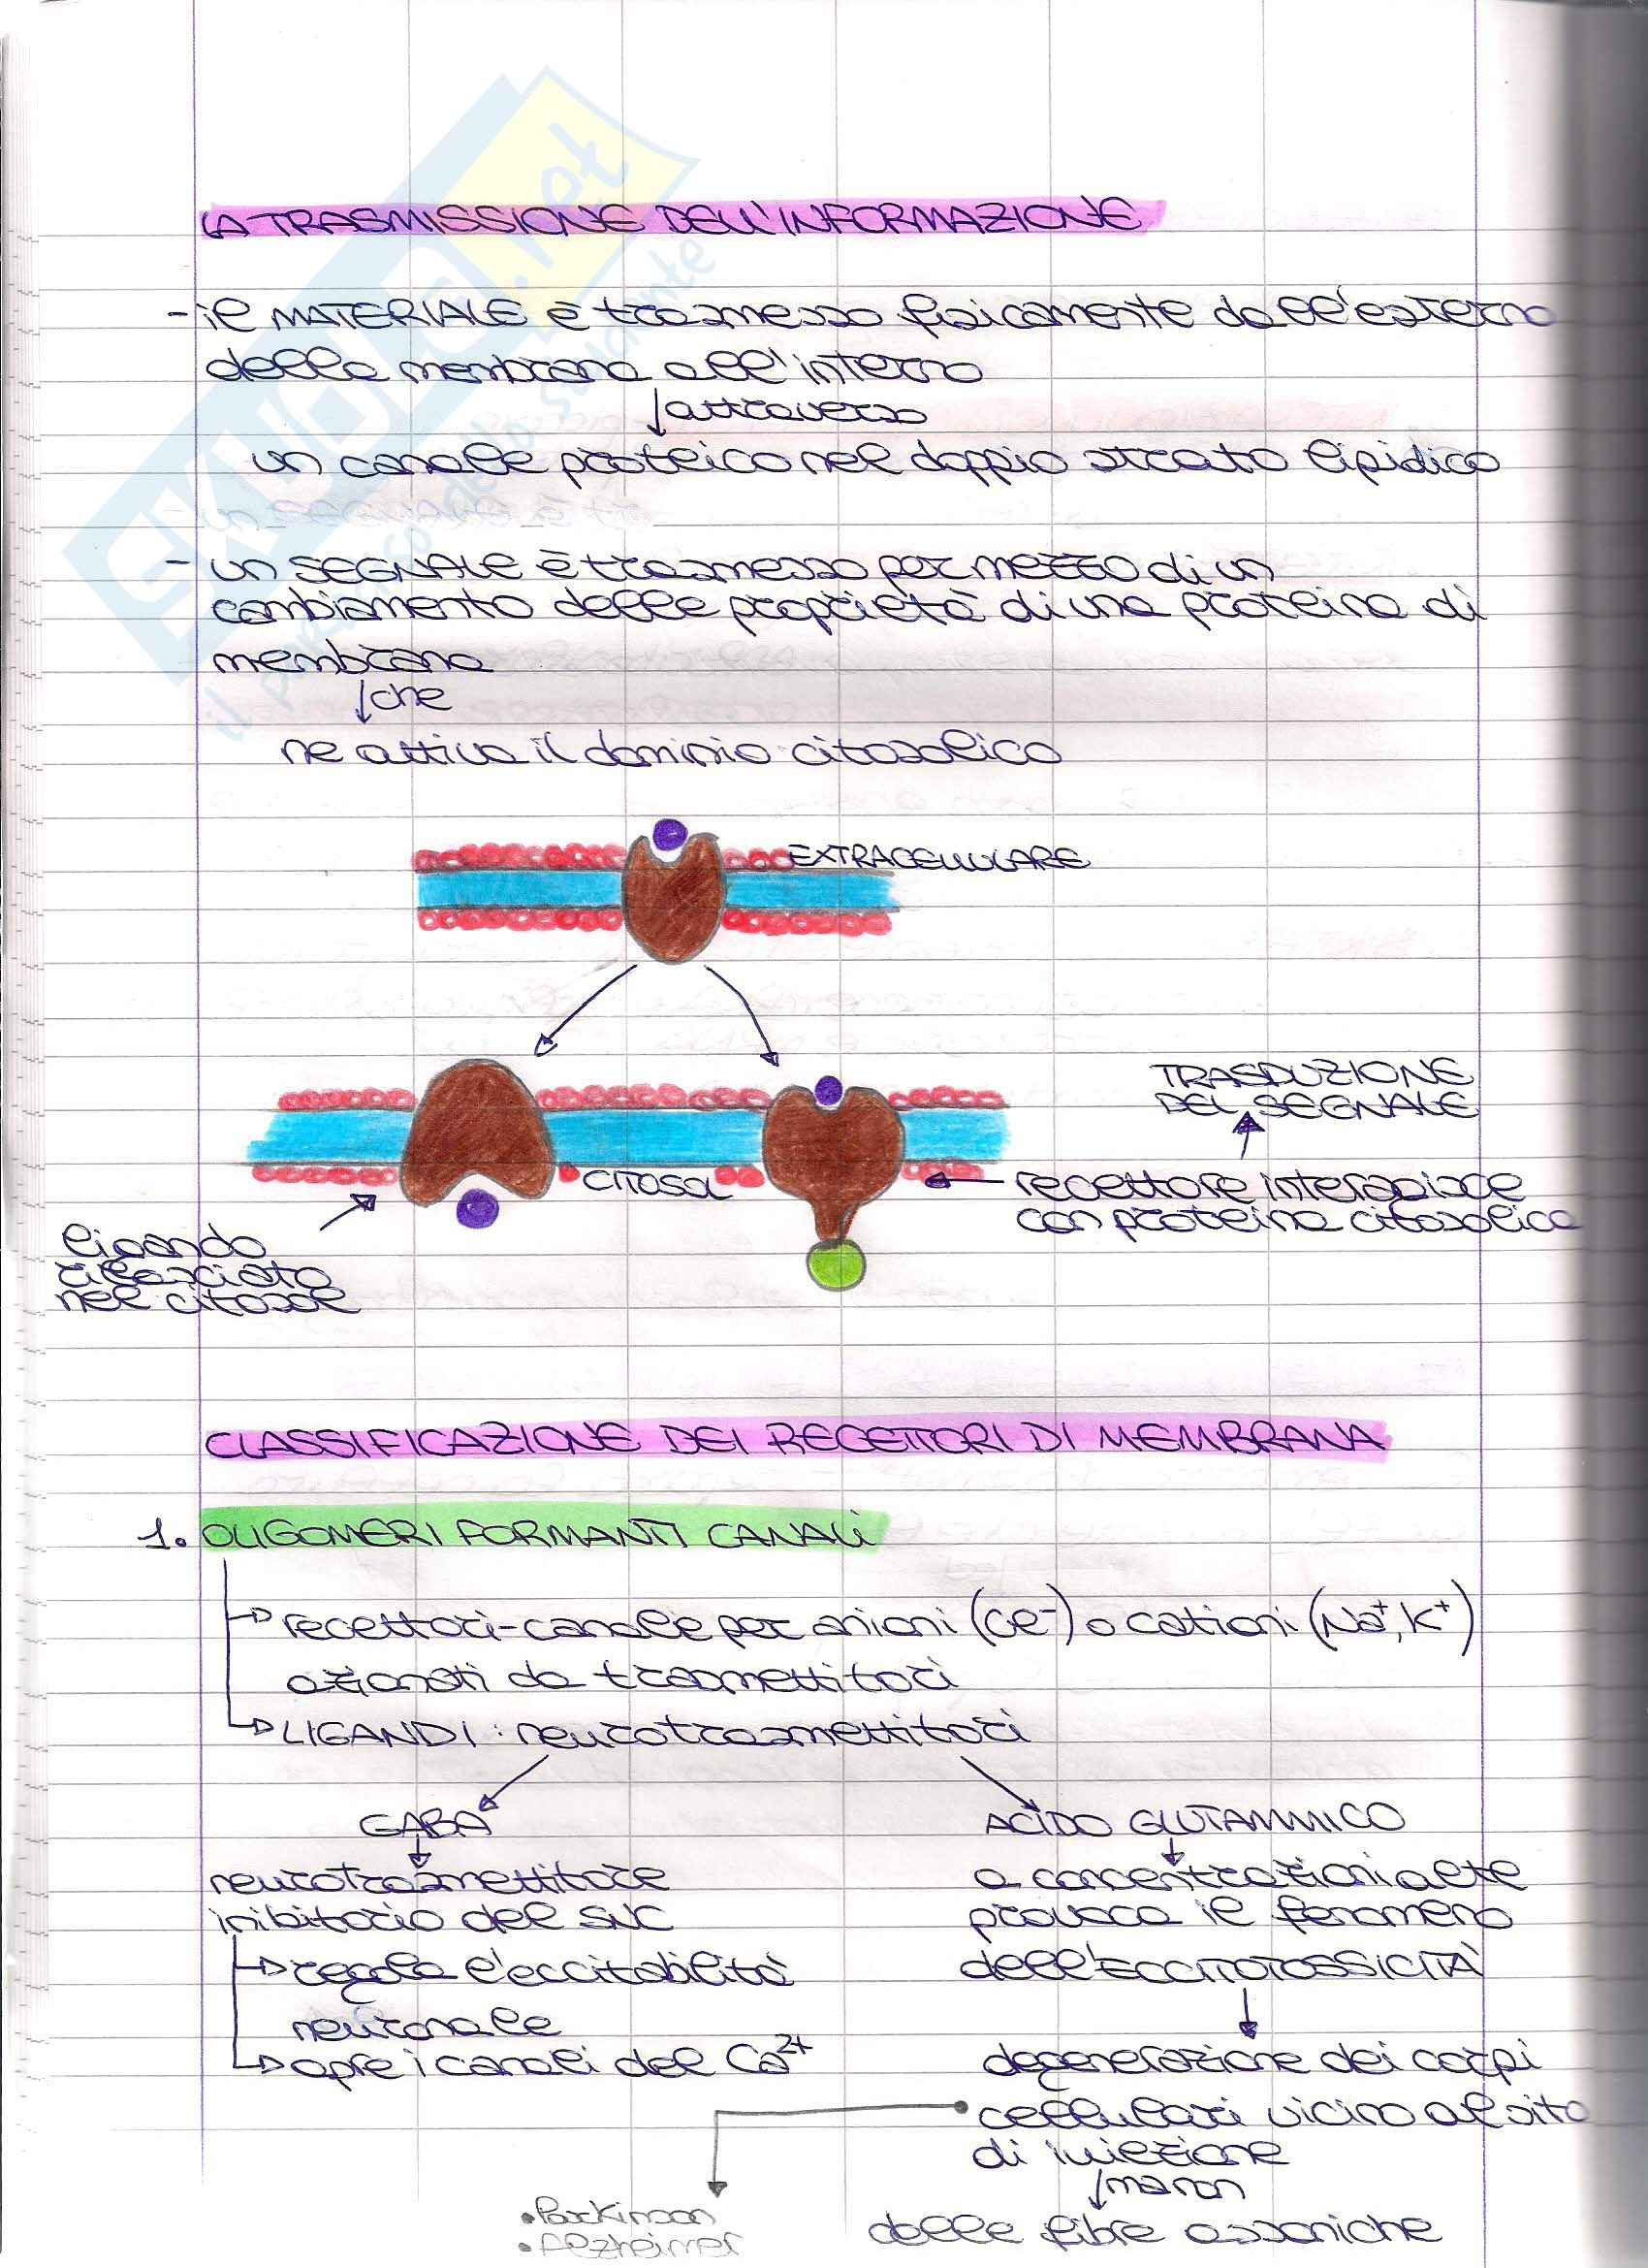 LA TRASMISSIONE DELL'INFORMAZIONE
- il MATERIALE è trasmesso fisicamente dall'esterno
della membrana all'interno
↓ attraverso
un canale proteico nel doppio strato lipidico
- un SEGNALE è trasmesso per mezzo di un
cambiamento delle proprietà di una proteina di
membrana
↓ che
ne attiva il dominio citosolico
EXTRACELLULARE
TRASDUZIONE
DEL SEGNALE
CITOSOL
recettore interagisce
con proteina citosolica
ligando
rilasciato
nel citosol
CLASSIFICAZIONE DEI RECETTORI DI MEMBRANA
1. OLIGOMERI FORMANTI CANALI
→ recettori-canale per anioni (Cl⁻) o cationi (Na⁺, K⁺)
azionati da trasmettitori
→ LIGANDI: neurotrasmettitori
GABA
ACIDO GLUTAMMICO
neurotrasmettitore
inibitorio del SNC
→ regola l'eccitabilità
neuronale
→ apre i canali del Ca²⁺
a concentrazioni alte
provoca il fenomeno
dell'ECCITOTOSSICITÀ
↓
degenerazione dei corpi
cellulari vicino al sito
di iniezione
↓ ma non
delle fibre assoniche
• Parkinson
• Alzheimer
SKUOLA.net